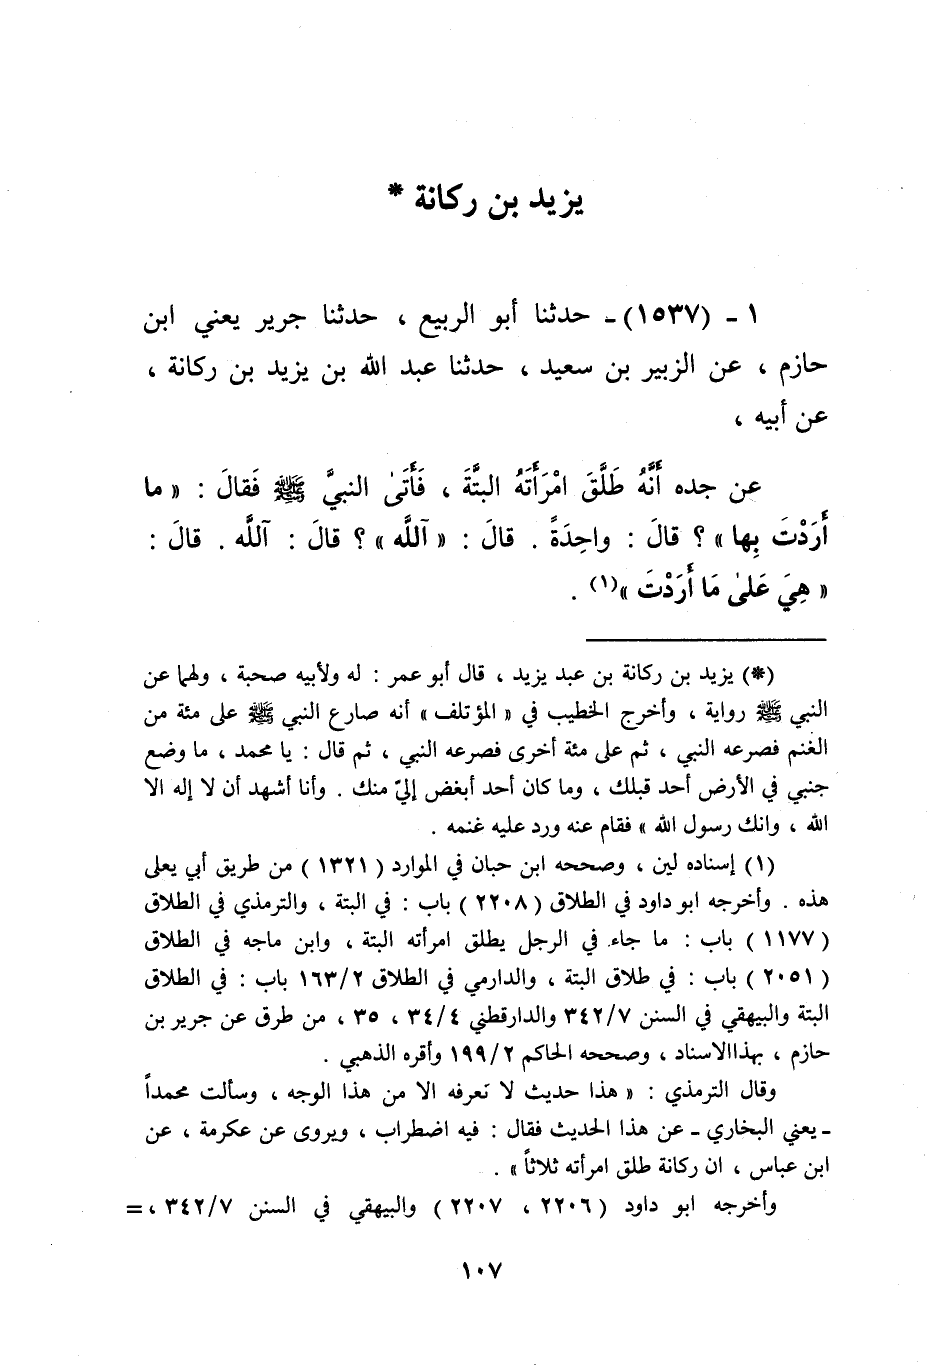 يزيد بن ركانة *
١ - (١٥٣٧) - حدثنا أبو الربيع ، حدثنا جرير يعني ابن
حازم ، عن الزبير بن سعيد ، حدثنا عبد الله بن يزيد بن ركانة ،
عن أبيه ،
عن جده أَنَّهُ طَلَّقَ امْرَأَتَهُ البتَّةَ ، فَأَتَىٰ النبيَّ ﷺ فَقالَ : « ما
أَرَدْتَ بِها » ؟ قالَ : واحِدَةً . قالَ : « آللَّه » ؟ قالَ : آللَّه . قالَ :
« هِيَ عَلىٰ مَا أَرَدْتَ »(١) .
(*) يزيد بن ركانة بن عبد يزيد ، قال أبو عمر : له ولأبيه صحبة ، ولهما عن
النبي ﷺ رواية ، وأخرج الخطيب في « المؤتلف » أنه صارع النبي ﷺ على مئة من
الغنم فصرعه النبي ، ثم على مئة أخرى فصرعه النبي ، ثم قال : يا محمد ، ما وضع
جنبي في الأرض أحد قبلك ، وما كان أحد أبغض إليّ منك . وأنا أشهد أن لا إله الا
الله ، وانك رسول الله » فقام عنه ورد عليه غنمه .
(١) إسناده لين ، وصححه ابن حبان في الموارد ( ١٣٢١ ) من طريق أبي يعلى
هذه . وأخرجه ابو داود في الطلاق ( ٢٢٠٨ ) باب : في البتة ، والترمذي في الطلاق
( ١١٧٧ ) باب : ما جاء في الرجل يطلق امرأته البتة ، وابن ماجه في الطلاق
( ٢٠٥١ ) باب : في طلاق البتة ، والدارمي في الطلاق ١٦٣/٢ باب : في الطلاق
البتة والبيهقي في السنن ٣٤٢/٧ والدارقطني ٣٤/٤ ، ٣٥ ، من طرق عن جرير بن
حازم ، بهذاالاسناد ، وصححه الحاكم ١٩٩/٢ وأقره الذهبي .
وقال الترمذي : « هذا حديث لا نعرفه الا من هذا الوجه ، وسألت محمداً
- يعني البخاري - عن هذا الحديث فقال : فيه اضطراب ، ويروى عن عكرمة ، عن
ابن عباس ، ان ركانة طلق امرأته ثلاثاً » .
وأخرجه ابو داود ( ٢٢٠٦ ، ٢٢٠٧ ) والبيهقي في السنن ٣٤٢/٧ ، =
١٠٧